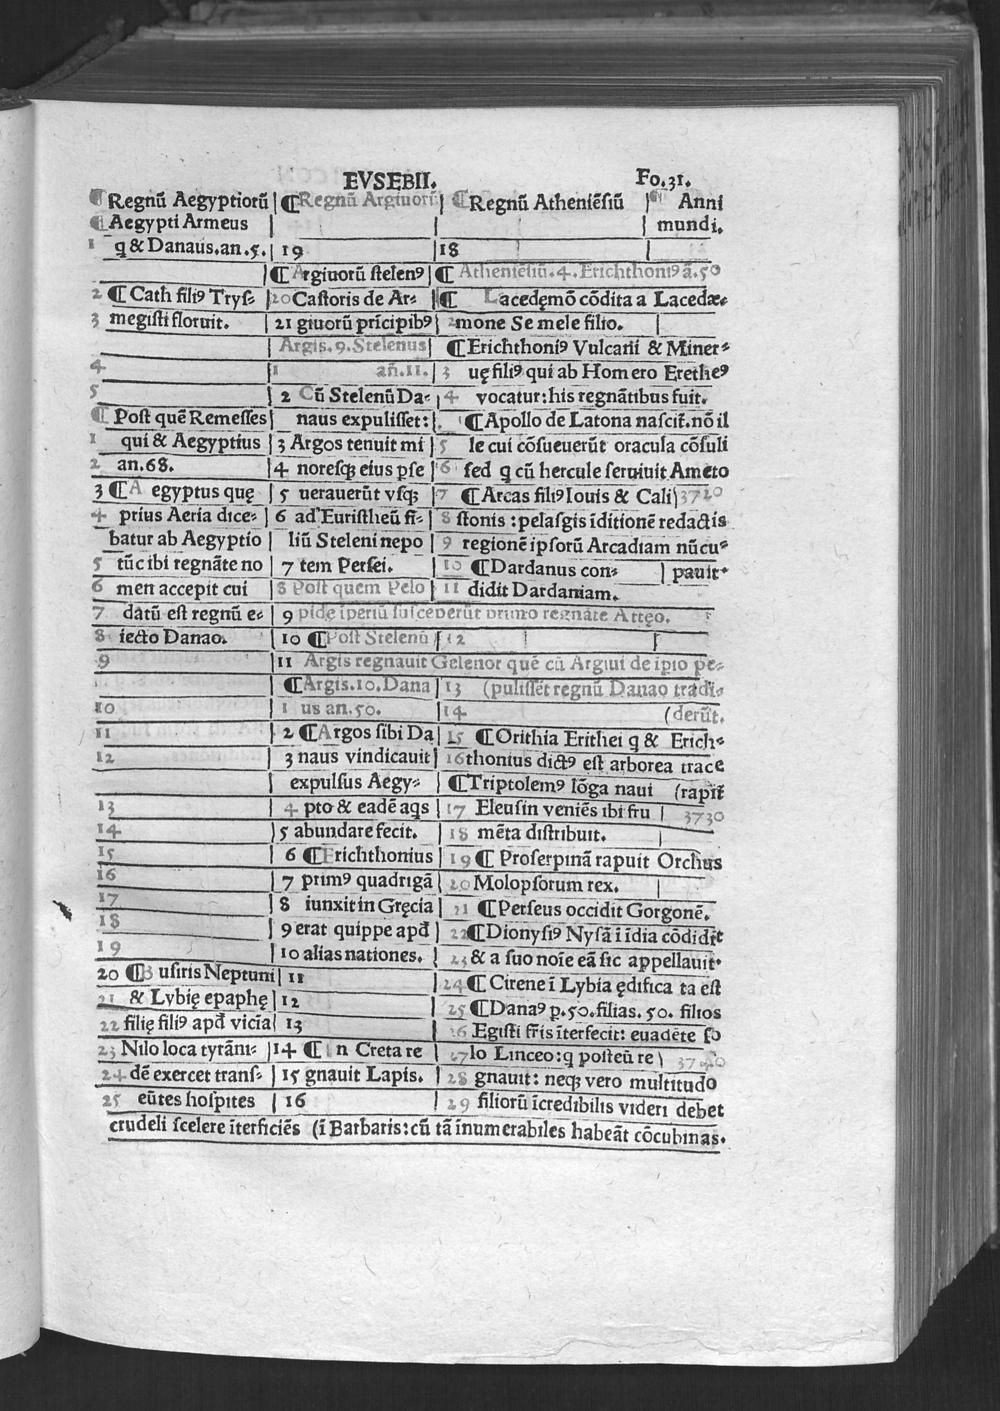 EVSEBII. Fo.31.
¶ Regnū Aegyptiorū ¶ Regnū Argiuorū ¶ Regnū Atheniēsiū ¶ Anni
¶ Aegypti Armeus mundi.
1 q & Danaus.an.5. 19 18
¶ Argiuorū stelenꝰ ¶ Atheniēsiū.4.Erichthoniꝰ ā.50
2 ¶ Cath filiꝰ Trys⸗ 20 Castoris de Ar⸗ ¶ Lacedęmō cōdita a Lacedæ⸗
3 megisti floruit. 21 giuorū prīcipibꝰ 2 mone Semele filio.
Argis.9.Stelenus ¶ Erichthoniꝰ Vulcani & Miner⸗
4 1 añ.11. 3 uę filiꝰ qui ab Homero Eretheꝰ
5 2 Cū Stelenū Da⸗ 4 vocatur:his regnātibus fuit.
¶ Post quē Remesses naus expulisset: ¶ Apollo de Latona nascit̃.nō il
1 qui & Aegyptius 3 Argos tenuit mi 5 le cui cōsueuerūt oracula cōsuli
2 an.68. 4 noresq; eius p̱se 6 sed q cū hercule seruiuit Ameto
3 ¶ A egyptus quę 5 uerauerūt vsq; 7 ¶ Arcas filiꝰ Iouis & Cali 3720
4 prius Aeria dice⸗ 6 ad Euristheū fi⸗ 8 stonis : pelasgis īditionē redactis
batur ab Aegyptio liū Steleni nepo 9 regionē ipsorū Arcadiam nūcu⸗
5 tūc ibi regnāte no 7 tem Persei. 10 ¶ Dardanus con⸗ pauit.
6 men accepit cui 8 Post quem Pelo 11 didit Dardaniam.
7 datū est regnū e⸗ 9 pidę īperiū susceperūt primo regnāte Atręo.
8 iecto Danao. 10 ¶ Post Stelenū 12
9 11 Argis regnauit Gelenor quē cū Argiui de ipso pe⸗
¶ Argis.10.Dana 13 (pulissēt regnū Danao tradi⸗
10 1 us an.50. 14 (derūt.
11 2 ¶ Argos sibi Da 15 ¶ Orithia Erithei q & Erich⸗
12 3 naus vindicauit 16 thonius dictꝰ est arborea trace
expulsus Aegy⸗ ¶ Triptolemꝰ lōga naui (rapit̃
13 4 pto & eadē aqs 17 Eleusin veniēs ibi fru 3730
14 5 abundare fecit. 18 mēta distribuit.
15 6 ¶ Erichthonius 19 ¶ Proserpinā rapuit Orchus
16 7 primꝰ quadrigā 20 Molopsorum rex.
17 8 iunxit in Gręcia 21 ¶ Perseus occidit Gorgonē.
18 9 erat quippe apđ 22 ¶ Dionysiꝰ Nysā ī īdia cōdidit
19 10 alias nationes. 23 & a suo noīe eā sic appellauit.
20 ¶ B usiris Neptuni 11 24 ¶ Cirene ī Lybia ędifica ta est
21 & Lybię epaphę 12 25 ¶ Danaꝰ p.50.filias. 50. filios
22 filię filiꝰ apđ vicīa 13 26 Egisti fr̄is īterfecit: euadēte so
23 Nilo loca tyrāni⸗ 14 ¶ I n Creta re 27 lo Linceo:q posteū re
24 dē exercet trans⸗ 15 gnauit Lapis. 28 gnauit: neq; vero multitudo
25 eūtes hospites 16 29 filiorū īcredibilis videri debet
crudeli scelere īterficiēs (ī Barbaris:cū tā īnumerabiles habeāt cōcubinas.